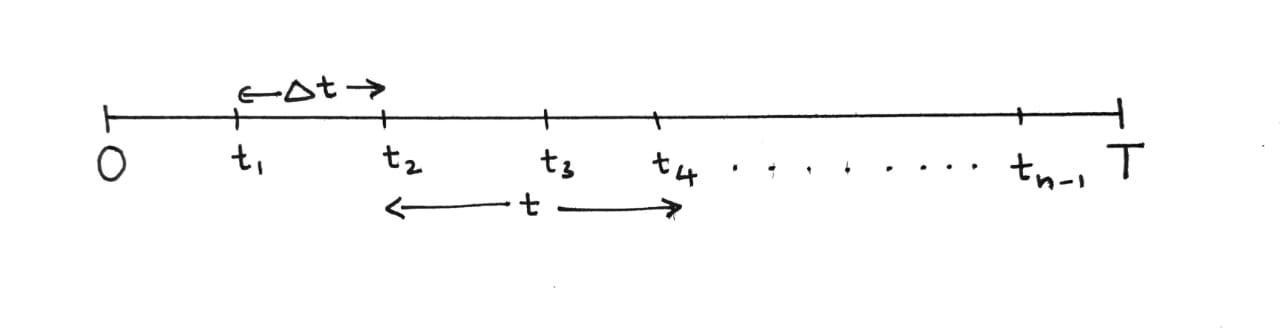 ←Δt→
0 t₁ t₂ t₃ t₄ . . . . . . . . tₙ₋₁ T
← t →